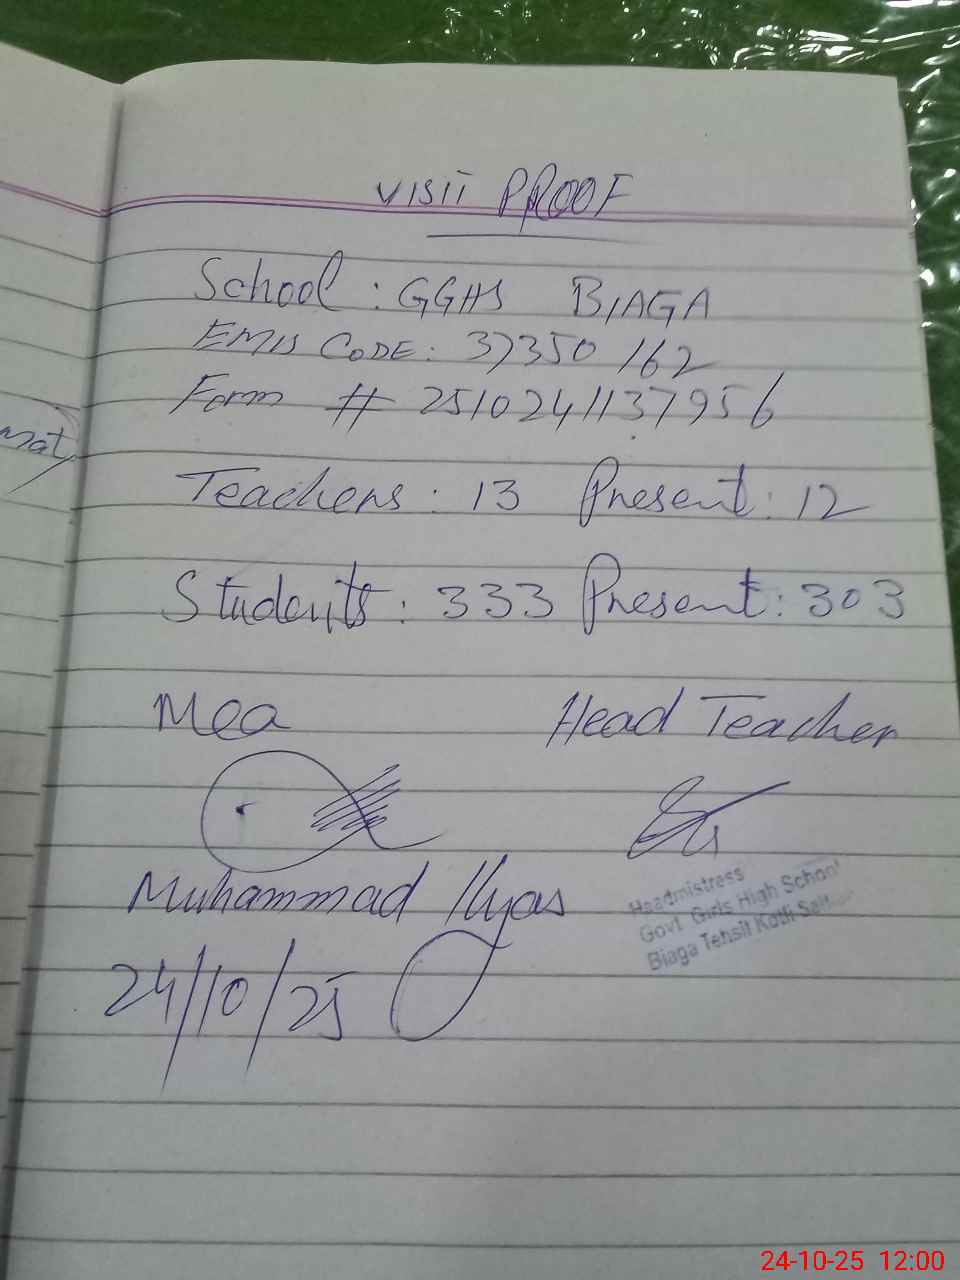 VISIT PROOF
School : GGHS BIAGA
EMIS CODE: 37350162
Form # 2510241137956
Teachers : 13 Present : 12
Students : 333 Present : 303
Mea Head Teacher
Muhammad Ilyas
24/10/25
Headmistress
Govt Girls High School
Biaga Tehsil Kotli Sat
mat
24-10-25 12:00